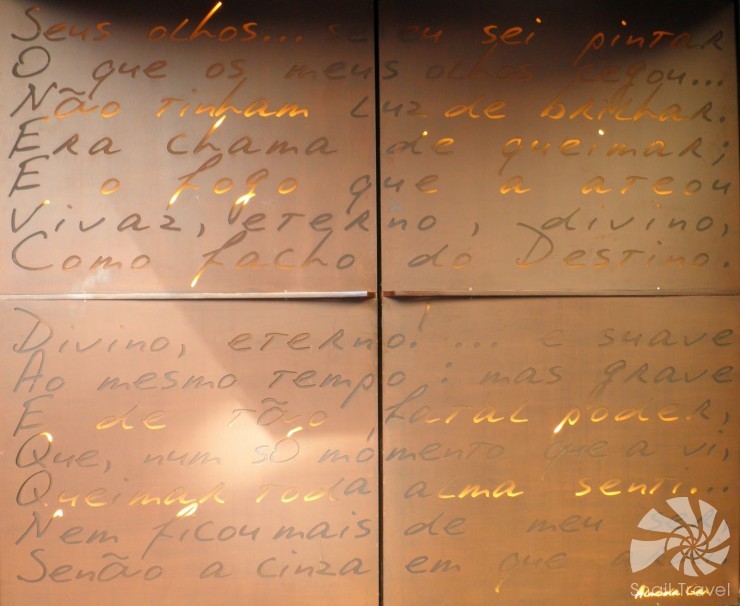 Seus olhos... se eu sei pintar
O que os meus olhos cegou...
Não tinham luz de brilhar.
Era chama de queimar;
E o fogo que a ateou
Vivaz, eterno, divino,
Como facho do Destino.
Divino, eterno! ... e suave
Ao mesmo tempo: mas grave
E de tão fatal poder,
Que, num só momento que a vi,
Queimar toda alma senti...
Nem ficou mais de meu
Senão a cinza em que
Almeida
Snail Travel